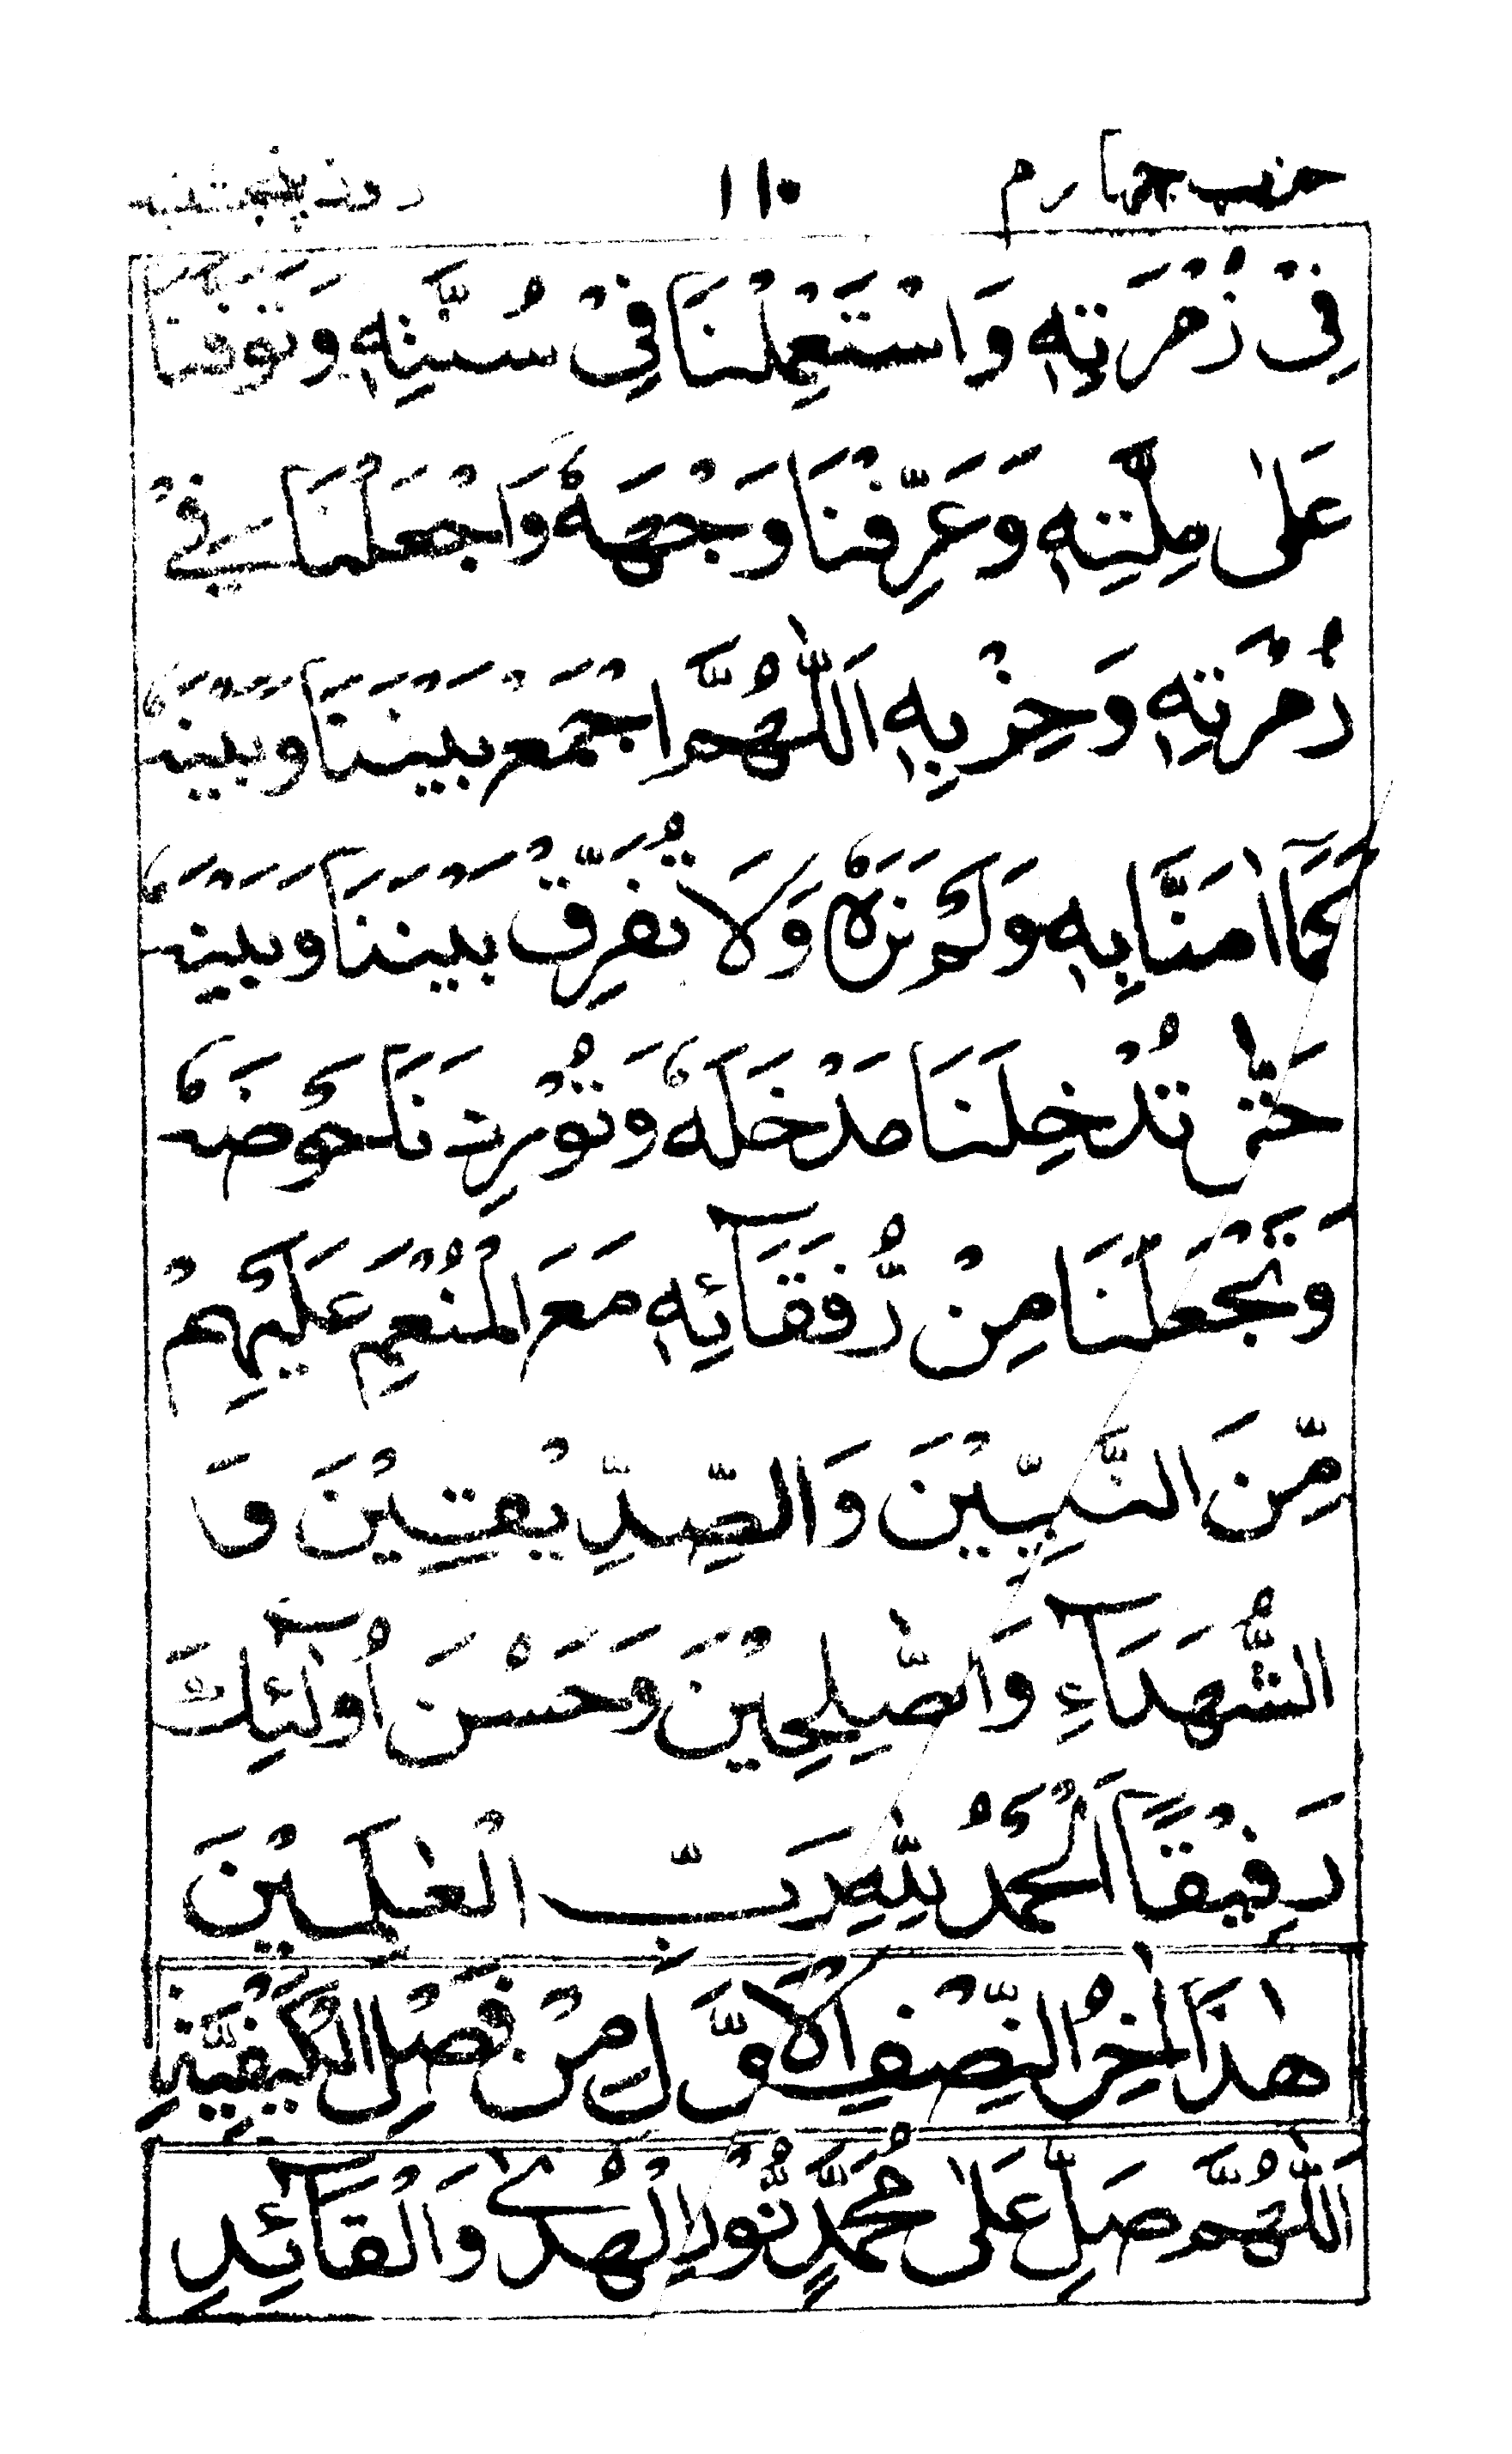 حزب چهارم ١١٠ روز پنجشنبه
فِیْ زُمْرَتِهٖ وَاسْتَعْمِلْنَا فِیْ سُنَّتِهٖ وَتَوَفَّنَا
عَلٰی مِلَّتِهٖ وَعَرِّفْنَا وَجْهَهٗ وَاجْعَلْنَا فِیْ
زُمْرَتِهٖ وَحِزْبِهٖ اَللّٰهُمَّ اجْمَعْ بَيْنَنَا وَبَيْنَهٗ
كَمَآ اٰمَنَّا بِهٖ وَلَمْ نَرَهٗ وَلَا تُفَرِّقْ بَيْنَنَا وَبَيْنَهٗ
حَتّٰی تُدْخِلَنَا مَدْخَلَهٗ وَتُوْرِدَنَا حَوْضَهٗ
وَتَجْعَلَنَا مِنْ رُّفَقَآئِهٖ مَعَ الْمُنْعَمِ عَلَيْهِمْ
مِّنَ النَّبِيّٖيْنَ وَالصِّدِّيْقِيْنَ وَ
الشُّهَدَآءِ وَالصّٰلِحِيْنَ وَحَسُنَ اُولٰٓئِكَ
رَفِيْقًا اَلْحَمْدُ لِلّٰهِ رَبِّ الْعٰلَمِيْنَ
هٰذَا اٰخِرُ النِّصْفِ الْاَوَّلِ مِنْ فَصْلِ الْكَيْفِيَّةِ
اَللّٰهُمَّ صَلِّ عَلٰی مُحَمَّدٍ نُّوْرِ الْهُدٰی وَالْقَآئِدِ